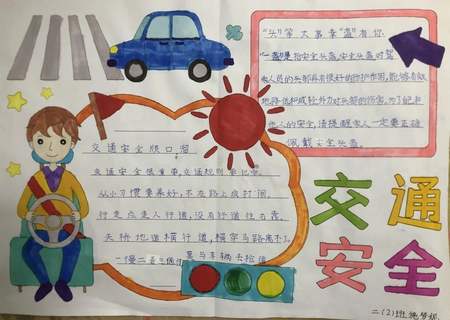 "头"等大事幸"盔"有你
"一盔"是指安全头盔,安全头盔对驾
驶人员的头部具有很好的防护作用,能够有效
地降低和减轻外力对头部的伤害,为了您和
他人的安全,请提醒家人一定要正确
佩戴安全头盔。
交通安全顺口溜
交通安全很重要,交通规则要记牢,
从小习惯要养好,不在路上疯打闹。
行走应走人行道,没有行道往右靠,
天桥地道横行道,横穿马路离不了。
一慢二看三通过,莫与车辆去抢道
交通
安全
二(2)班